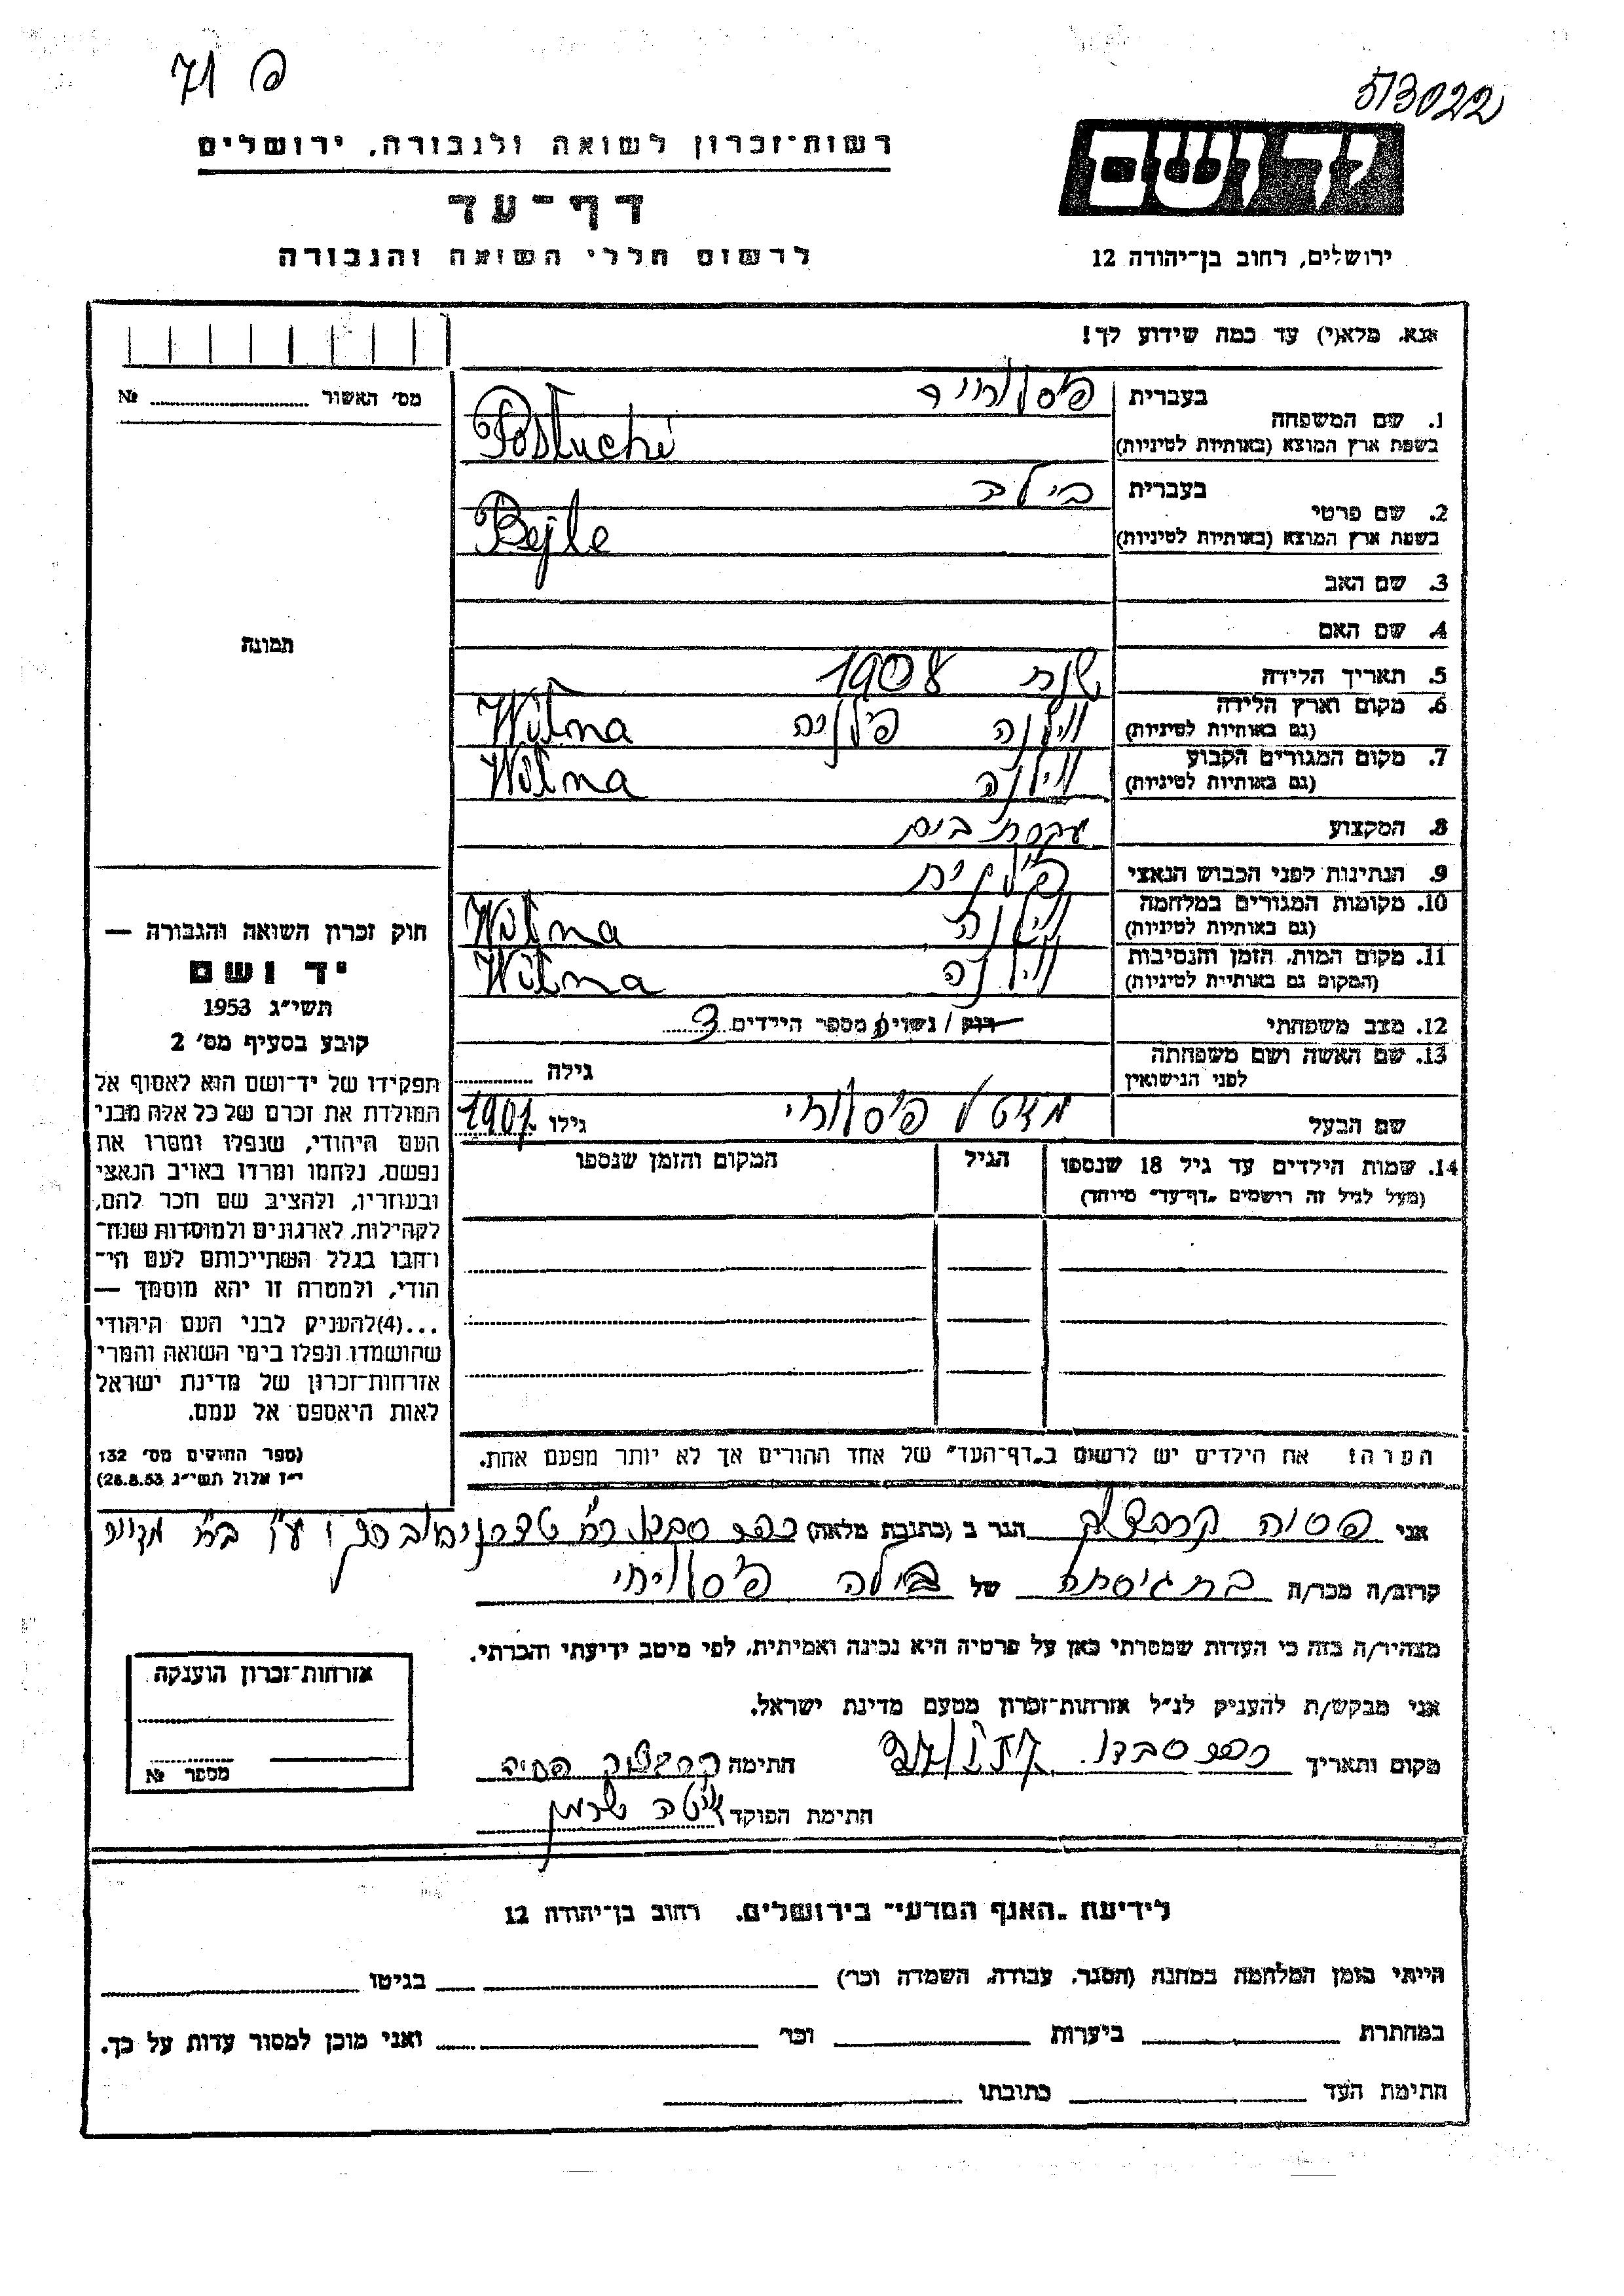 פ 71
513022
רשות־זכרון לשואה ולגבורה, ירושלים
יד ושם
דף־עד
לרשום חללי השואה והגבורה
ירושלים, רחוב בן־יהודה 12
אנא, מלא(י) עד כמה שידוע לך!
מס' האשור № 
1. שם המשפחה
בעברית
בשפת ארץ המוצא (באותיות לטיניות)
Posluchi
2. שם פרטי
בעברית ביילה
בשפת ארץ המוצא (באותיות לטיניות)
Bejle
3. שם האב
4. שם האם
תמונה
5. תאריך הלידה שנת 1908
6. מקום וארץ הלידה
(גם באותיות לטיניות)
וילנה פולניה Wilna
7. מקום המגורים הקבוע
(גם באותיות לטיניות)
וילנה Wilna
8. המקצוע עקרת בית
9. הנתינות לפני הכבוש הנאצי פולנית
10. מקומות המגורים במלחמה
(גם באותיות לטיניות)
וילנה Wilna
11. מקום המות, הזמן והנסיבות
(המקום גם באותיות לטיניות)
וילנה Wilna
12. מצב משפחתי רוק / נשוי מספר הילדים 3
13. שם האשה ושם משפחתה
לפני הנישואין
גילה
שם הבעל גילו 1901
14. שמות הילדים עד גיל 18 שנספו
(מעל לגיל זה רושמים "דף־עד" מיוחד)
הגיל
המקום והזמן שנספו
חוק זכרון השואה והגבורה —
יד ושם
תשי"ג 1953
קובע בסעיף מס' 2
תפקידו של יד־ושם הוא לאסוף אל
המולדת את זכרם של כל אלה מבני
העם היהודי, שנפלו ומסרו את
נפשם, נלחמו ומרדו באויב הנאצי
ובעוזריו, ולהציב שם וזכר להם,
לקהילות, לארגונים ולמוסדות שנח־
רבו בגלל השתייכותם לעם הי־
הודי, ולמטרה זו יהא מוסמך —
...(4)להעניק לבני העם היהודי
שהושמדו ונפלו בימי השואה והמרי
אזרחות־זכרון של מדינת ישראל
לאות היאספם אל עמם.
(ספר החוקים מס' 132
י"ז אלול תשי"ג 28.8.53)
הערה: את הילדים יש לרשום ב"דף־העד" של אחד ההורים אך לא יותר מפעם אחת.
אני הגר ב (כתובת מלאה) כפר סבא
קרוב/ה מכר/ה בת גיסתה של ביילה
מצהיר/ה בזה כי העדות שמסרתי כאן על פרטיה היא נכונה ואמיתית, לפי מיטב ידיעתי והכרתי.
אני מבקש/ת להעניק לנ"ל אזרחות־זכרון מטעם מדינת ישראל.
מקום ותאריך כפר סבא חתימה
חתימת הפוקד
אזרחות־זכרון הוענקה
מספר №
לידיעת "האגף המדעי" בירושלים, רחוב בן־יהודה 12
הייתי בזמן המלחמה במחנה (הסגר, עבודה, השמדה וכו') בגיטו
במחתרת ביערות וכו' ואני מוכן למסור עדות על כך.
חתימת העד כתובתו